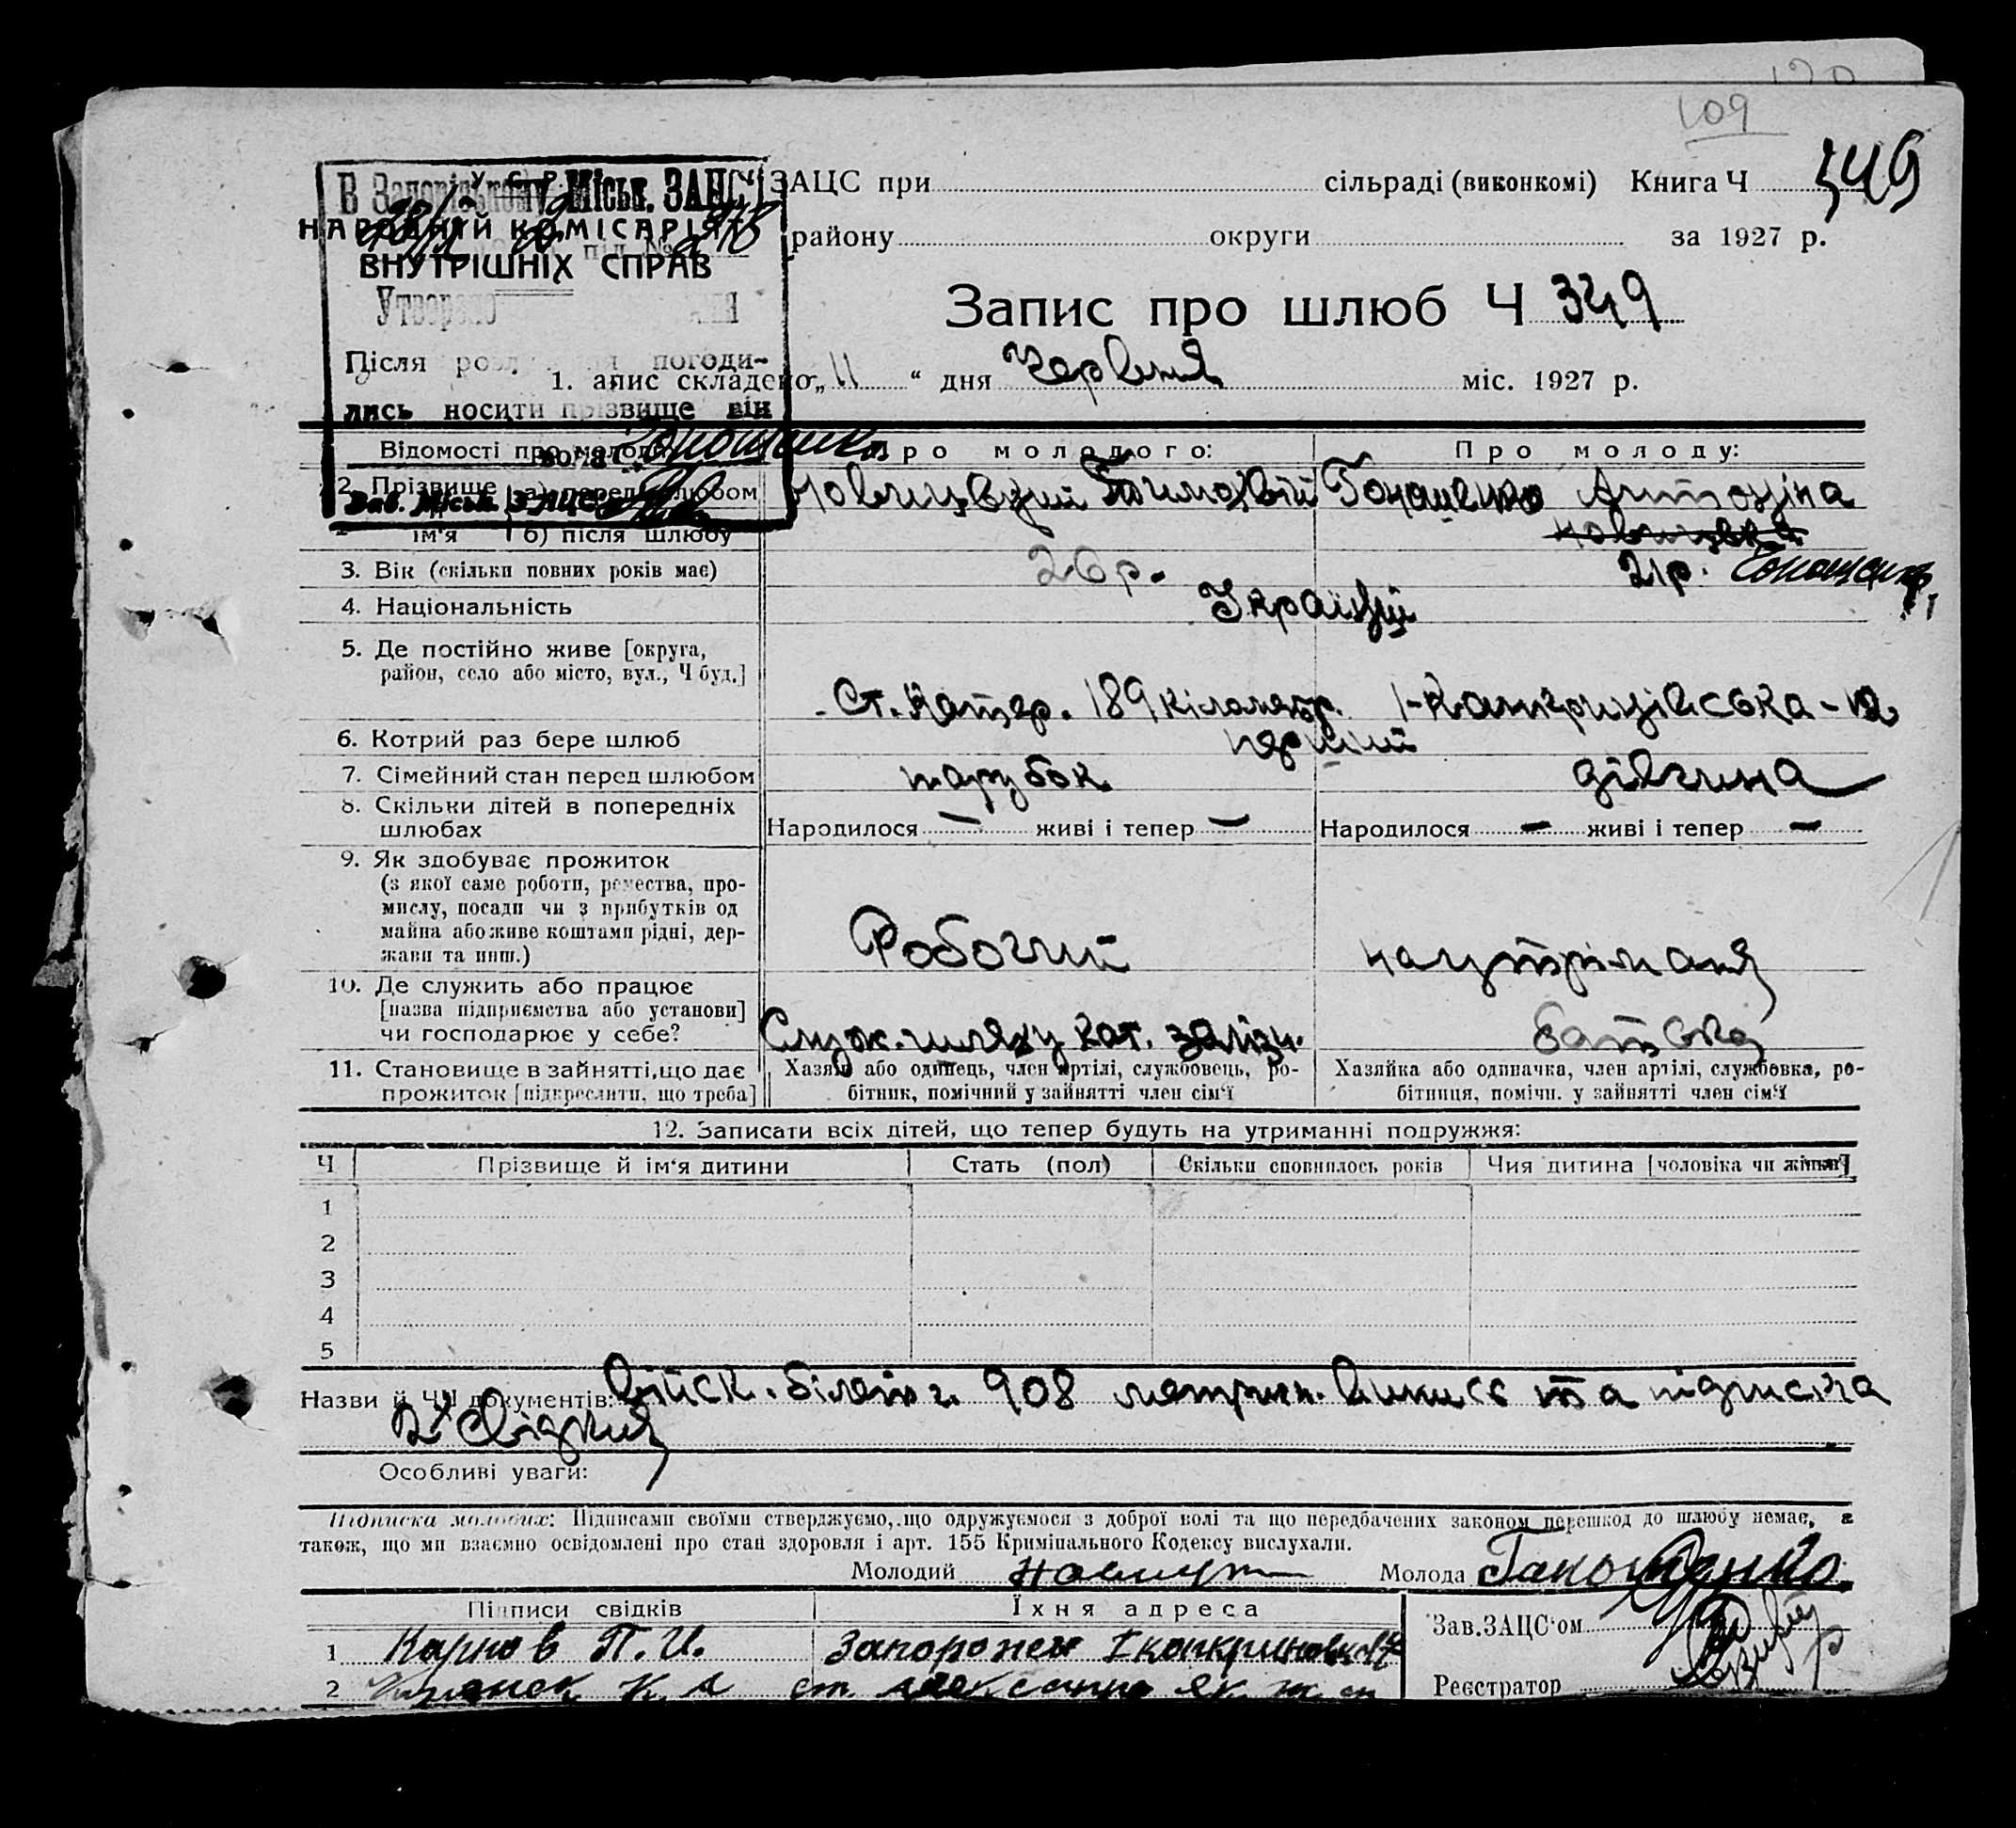 109
В Запорізькому Міськ. ЗАЦСі
У. С. Р. Р. ЗАЦС при сільраді (виконкомі) Книга Ч 349
НАРОДНИЙ КОМІСАРІЯТ під №
району округи за 1927 р.
ВНУТРІШНІХ СПРАВ
Утворено
Запис про шлюб Ч 349
Після погоди-
1. апис складено „11“ дня Червня міс. 1927 р.
лись носити прізвище він
вона
Відомості про молодих Про молодого: Про молоду:
2. Прізвище а) перед шлюбом Новицький Тимофій Гонощенко Антоніна
Зав. Міськ. ЗАЦС
ім'я б) після шлюбу Новицька
3. Вік (скільки повних років має) 26 р. 21 р. Гонощенко
4. Національність Українці
5. Де постійно живе [округа,
район, село або місто, вул., Ч буд.]
Ст. Катер. 189 кілометр. 1-Катеринівська-
6. Котрий раз бере шлюб перший
7. Сімейний стан перед шлюбом парубок дівчина
8. Скільки дітей в попередніх
шлюбах
Народилося — живі і тепер — Народилося — живі і тепер —
9. Як здобуває прожиток
(з якої саме роботи, ремества, про-
мислу, посади чи з прибутків од
майна або живе коштами рідні, дер-
жави та инш.)
Робочий на утріманя
10. Де служить або працює
[назва підприємства або установи]
чи господарює у себе?
Служ. шляху Кат. залізн. батька
11. Становище в зайнятті, що дає Хазяїн або одинець, член артілі, службовець, ро- Хазяйка або одиначка, член артілі, службовка, ро-
прожиток [підкреслити, що треба] бітник, помічний у зайнятті член сім'ї бітниця, помічн. у зайнятті член сім'ї
12. Записати всіх дітей, що тепер будуть на утриманні подружжя:
Ч Прізвище й ім'я дитини Стать (пол) Скільки сповнилось років Чия дитина [чоловіка чи жінки]
1
2
3
4
5
Назви й ЧЧ документів: Військ. білет ч. 908 метрич. виписє та підписка
2х свідкия
Особливі уваги:
Підписка молодих: Підписами своїми стверджуємо, що одружуємося з доброї волі та що передбачених законом перешкод до шлюбу немає, а
також, що ми взаємно освідомлені про стан здоровля і арт. 155 Кримінального Кодексу вислухали.
Молодий Молода Ганощенко
Підписи свідків Їхня адреса Зав. ЗАЦС'ом
1 Карпов П. И. Запорожья
2 К. А ст. Реєстратор